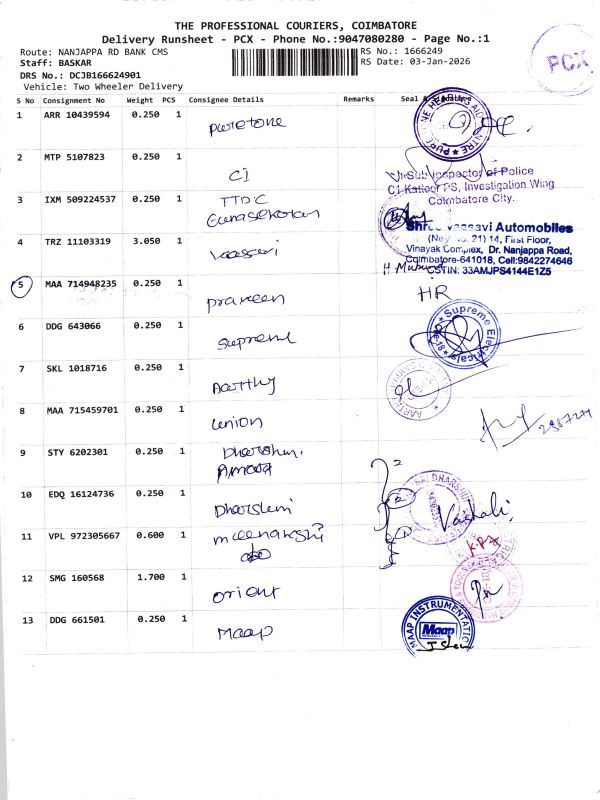 THE PROFESSIONAL COURIERS, COIMBATORE
Delivery Runsheet - PCX - Phone No.:9047080280 - Page No.:1
Route: NANJAPPA RD BANK CMS
RS No.: 1666249
Staff: BASKAR
RS Date: 03-Jan-2026
PCX
DRS No.: DCJB166624901
Vehicle: Two Wheeler Delivery
S No Consignment No Weight PCS Consignee Details Remarks Seal &
1 ARR 10439594 0.250 1 puretone
2 MTP 5107823 0.250 1 C1
Sub Inspector of Police
C1 Katoor PS, Investigation Wing
Coimbatore City.
3 IXM 509224537 0.250 1 TTDC
4 TRZ 11103319 3.050 1 Vaasavi
Shree Vaasavi Automobiles
(New No. 21) 14, First Floor,
Vinayak Complex, Dr. Nanjappa Road,
Coimbatore-641018, Cell:9842274646
GSTIN: 33AMJPS4144E1Z5
5 MAA 714948235 0.250 1 praveen HR
6 DDG 643066 0.250 1 Supreme
Supreme Electricals
7 SKL 1018716 0.250 1 Aarthy
8 MAA 715459701 0.250 1 Union
9 STY 6202301 0.250 1 Dharshini
10 EDQ 16124736 0.250 1 Dharshini
Vaishali
11 VPL 972305667 0.600 1 meenakshi
12 SMG 160568 1.700 1 Orient
13 DDG 661501 0.250 1 Maap
MAAP INSTRUMENTATION
Maap